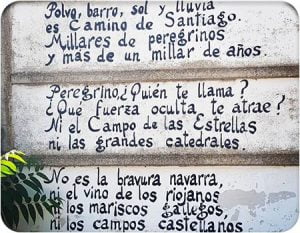 Polvo, barro, sol y lluvia
es Camino de Santiago.
Millares de peregrinos
y más de un millar de años.
Peregrino ¿Quién te llama?
¿Qué fuerza oculta te atrae?
Ni el Campo de las Estrellas
ni las grandes catedrales.
No es la bravura navarra,
ni el vino de los riojanos
ni los mariscos gallegos,
ni los campos castellanos.